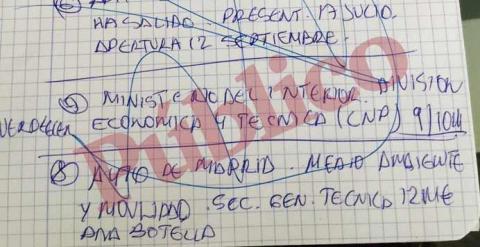 HA SALIDO PRESENT. 17 JULIO.
APERTURA 12 SEPTIEMBRE.
9 MINISTERIO DEL INTERIOR. DIVISION
ECONOMICA Y TECNICA (CNP) 9/10M
8 AYTO DE MADRID. MEDIO AMBIENTE
Y MOVILIDAD. SEC. GEN. TECNICA 12M€
ANA BOTELLA
Público